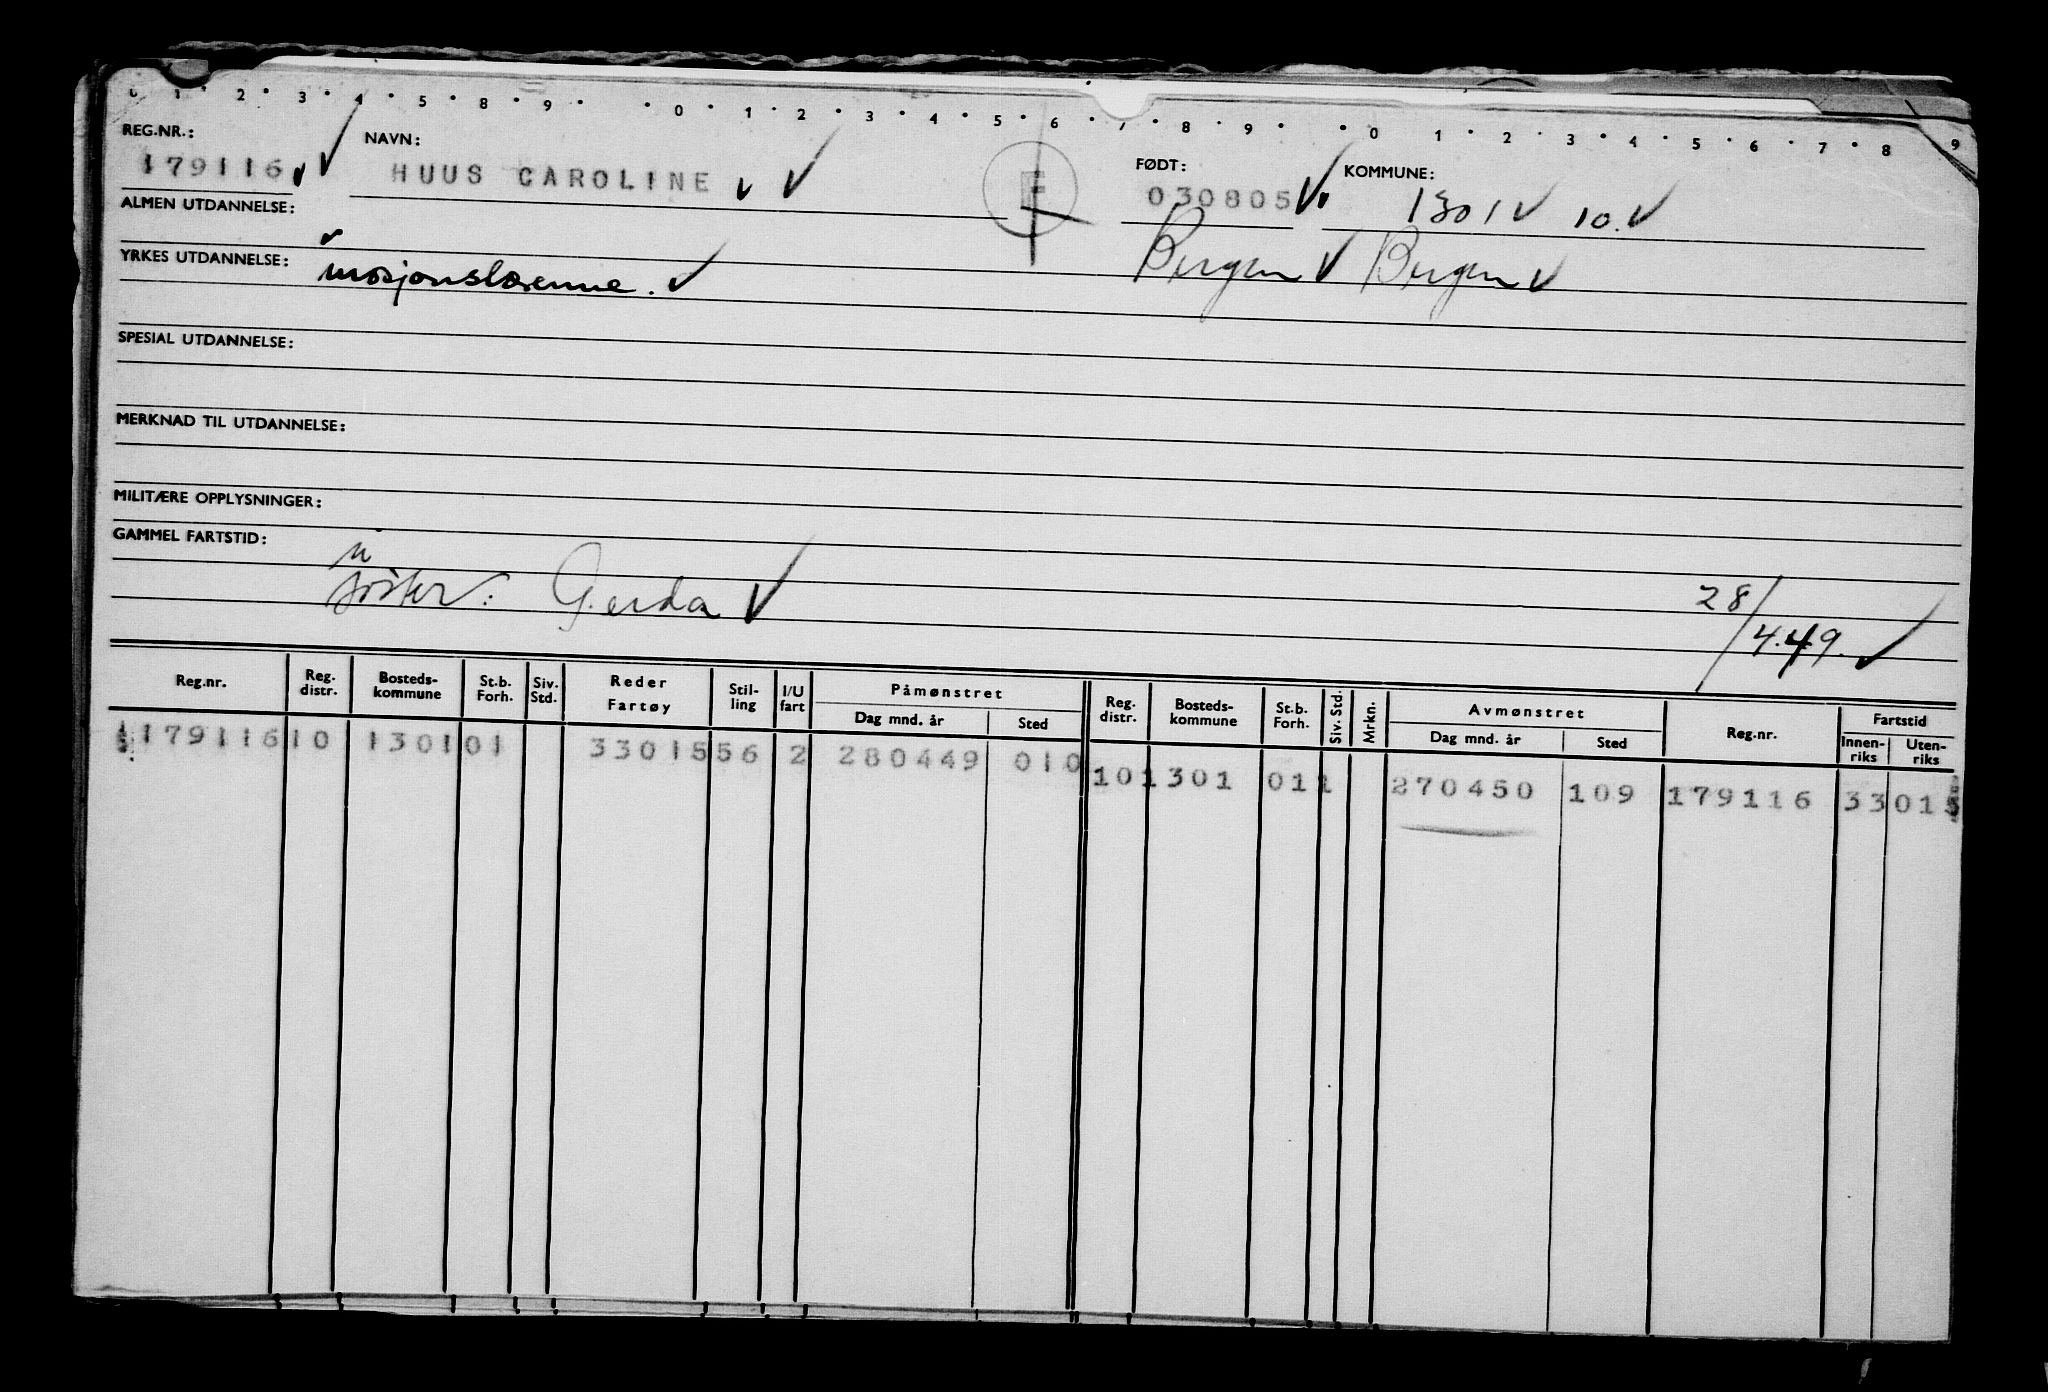 0 1 2 3 4 5 8 9 0 1 2 3 4 5 6 7 8 9 0 1 2 3 4 5 6 7 8 9
REG.NR.: NAVN: FØDT: KOMMUNE:
179116 HUUS CAROLINE 030805 1301 10.
ALMEN UTDANNELSE:
Bergen Bergen
YRKES UTDANNELSE: mosjonslærerinne.
SPESIAL UTDANNELSE:
MERKNAD TIL UTDANNELSE:
MILITÆRE OPPLYSNINGER:
GAMMEL FARTSTID:
söster: Gerda 28/4.49.
Reg.nr. Reg. distr. Bosteds-kommune St.b. Forh. Siv. Std. Reder Fartøy Stil-ling I/U fart Påmønstret Dag mnd. år Sted Reg. distr. Bosteds-kommune St.b. Forh. Siv. Std. Mrkn. Avmønstret Dag mnd. år Sted Reg.nr. Fartstid Innen-riks Uten-riks
179116 10 1301 01 33015 56 2 280449 010
10 1301 011 270450 109 179116 33015